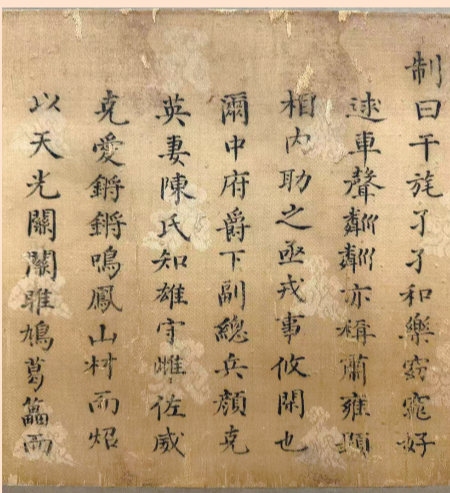 制曰干旄孑孑和樂窈窕好
逑車聲粼粼亦稱肅雍顯
相内助之亟戎事攸閑也
爾中府爵下副總兵顏克
英妻陳氏知雄守雌佐威
克愛鏘鏘鳴鳳山村而炤
以天光關關雎鳩葛藟而